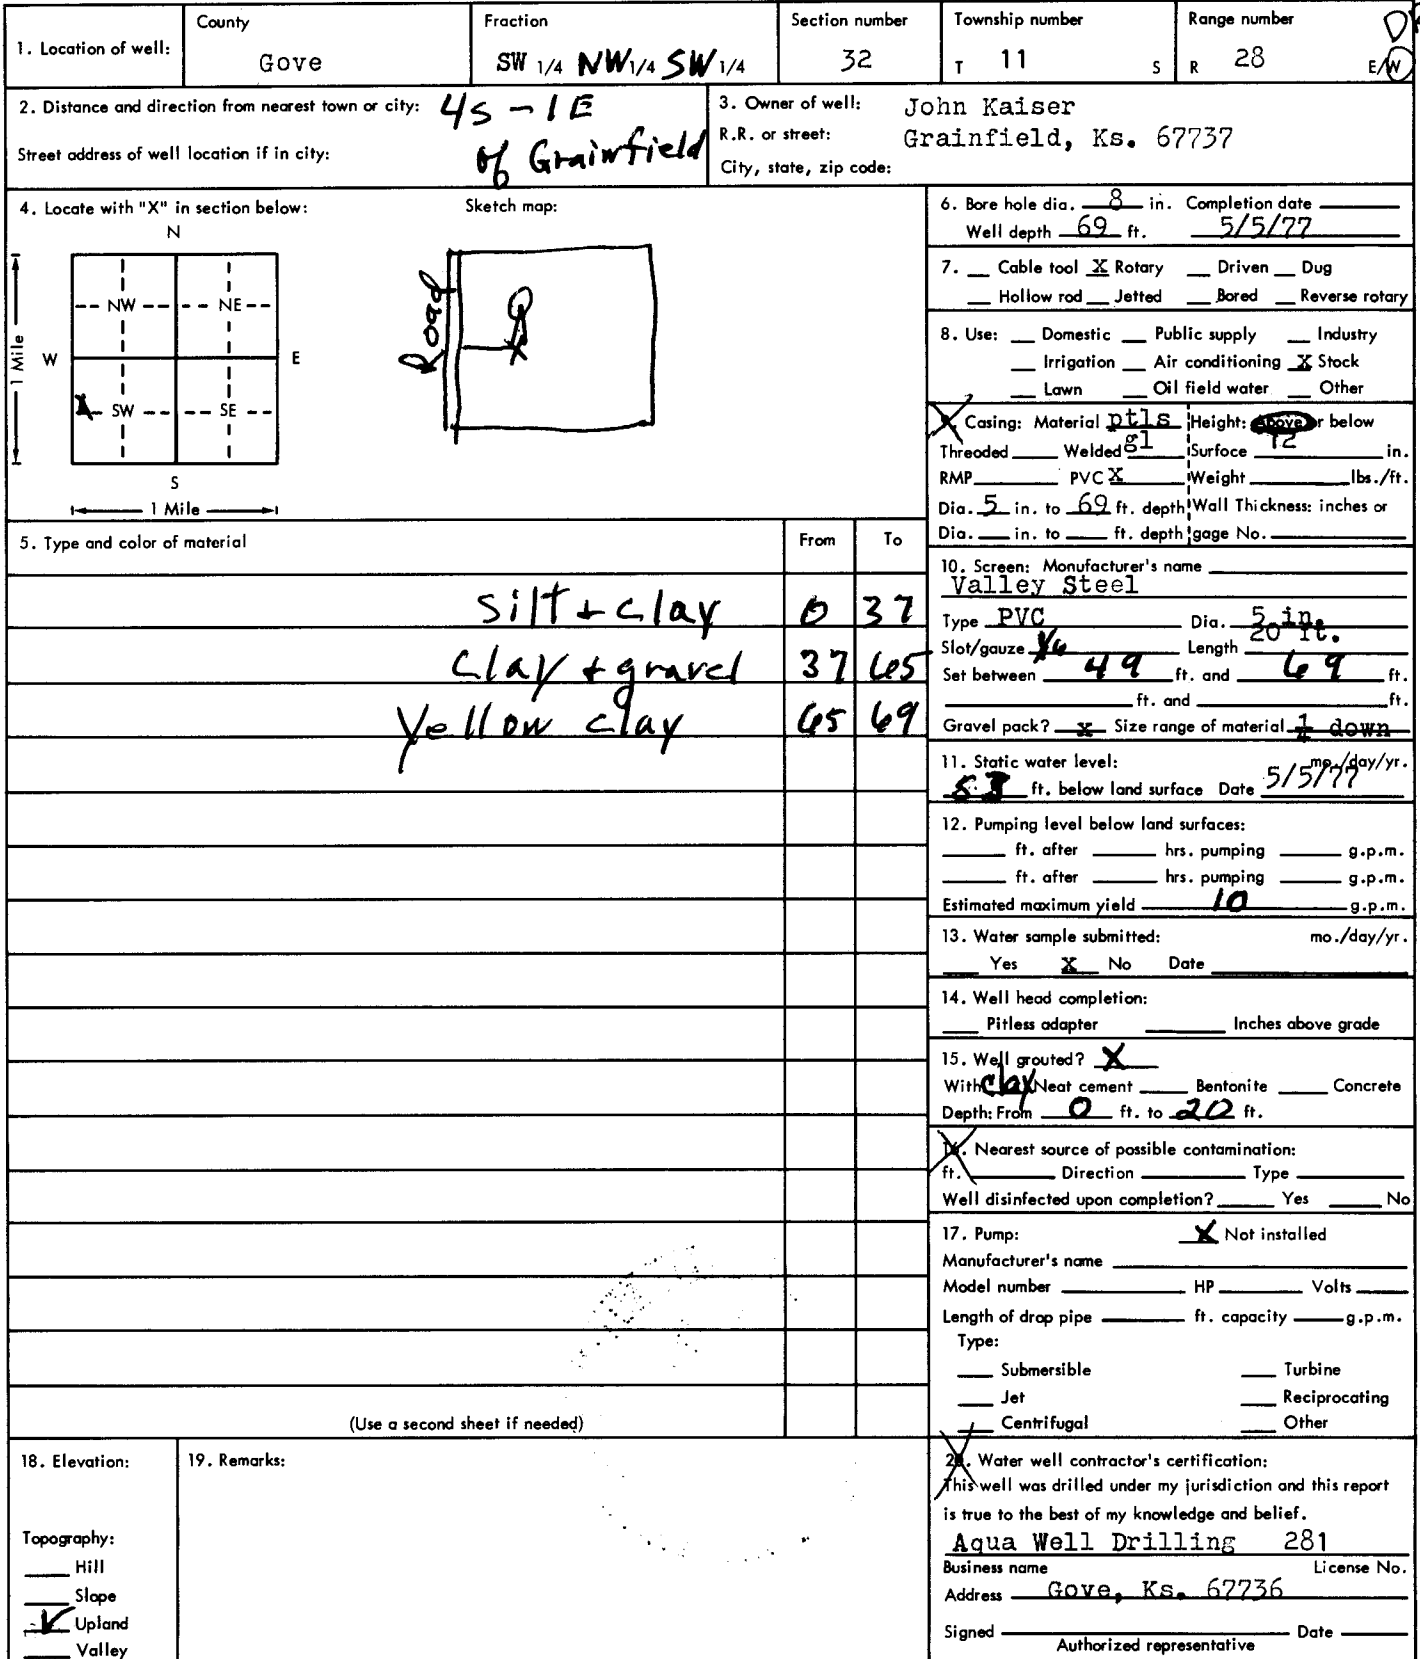 1. Location of well: County Gove Fraction SW 1/4 NW 1/4 SW 1/4 Section number 32 Township number T 11 S Range number R 28 E/W
2. Distance and direction from nearest town or city: 4S - 1E of Grainfield
Street address of well location if in city:
3. Owner of well: John Kaiser
R.R. or street: Grainfield, Ks. 67737
City, state, zip code:
4. Locate with "X" in section below: Sketch map:
N
NW NE
W E
SW SE
S
1 Mile
1 Mile
Road
5. Type and color of material From To
Silt + clay 0 37
Clay + gravel 37 65
Yellow clay 65 69
(Use a second sheet if needed)
6. Bore hole dia. 8 in. Completion date
Well depth 69 ft. 5/5/77
7. Cable tool X Rotary Driven Dug
Hollow rod Jetted Bored Reverse rotary
8. Use: Domestic Public supply Industry
Irrigation Air conditioning X Stock
Lawn Oil field water Other
9. Casing: Material ptls Height: Above or below
Threaded Welded gl Surface 12 in.
RMP PVC X Weight lbs./ft.
Dia. 5 in. to 69 ft. depth Wall Thickness: inches or
Dia. in. to ft. depth gage No.
10. Screen: Manufacturer's name
Valley Steel
Type PVC Dia. 5 in.
Slot/gauze Length 20 ft.
Set between 49 ft. and 69 ft.
ft. and ft.
Gravel pack? x Size range of material 1/4 down
11. Static water level: mo./day/yr.
53 ft. below land surface Date 5/5/77
12. Pumping level below land surfaces:
ft. after hrs. pumping g.p.m.
ft. after hrs. pumping g.p.m.
Estimated maximum yield 10 g.p.m.
13. Water sample submitted: mo./day/yr.
Yes X No Date
14. Well head completion:
Pitless adapter Inches above grade
15. Well grouted? X
With clay Neat cement Bentonite Concrete
Depth: From 0 ft. to 20 ft.
16. Nearest source of possible contamination:
ft. Direction Type
Well disinfected upon completion? Yes No
17. Pump: X Not installed
Manufacturer's name
Model number HP Volts
Length of drop pipe ft. capacity g.p.m.
Type:
Submersible Turbine
Jet Reciprocating
Centrifugal Other
18. Elevation:
Topography:
Hill
Slope
Upland
Valley
19. Remarks:
20. Water well contractor's certification:
This well was drilled under my jurisdiction and this report
is true to the best of my knowledge and belief.
Aqua Well Drilling 281
Business name License No.
Address Gove, Ks. 67736
Signed Date
Authorized representative